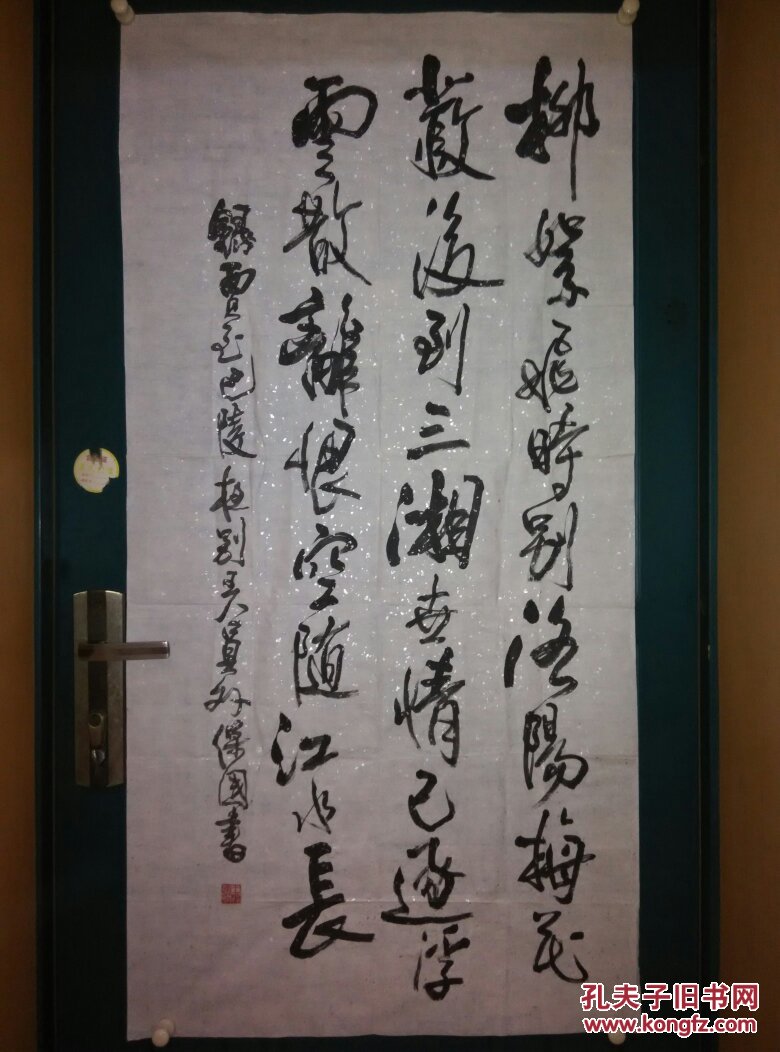 柳絮飛時別洛陽梅花
發後到三湘世情已逐浮
雲散離恨空隨江水長
錄賈至巴陵夜別王八員外保國書
孔夫子旧书网
www.kongfz.com